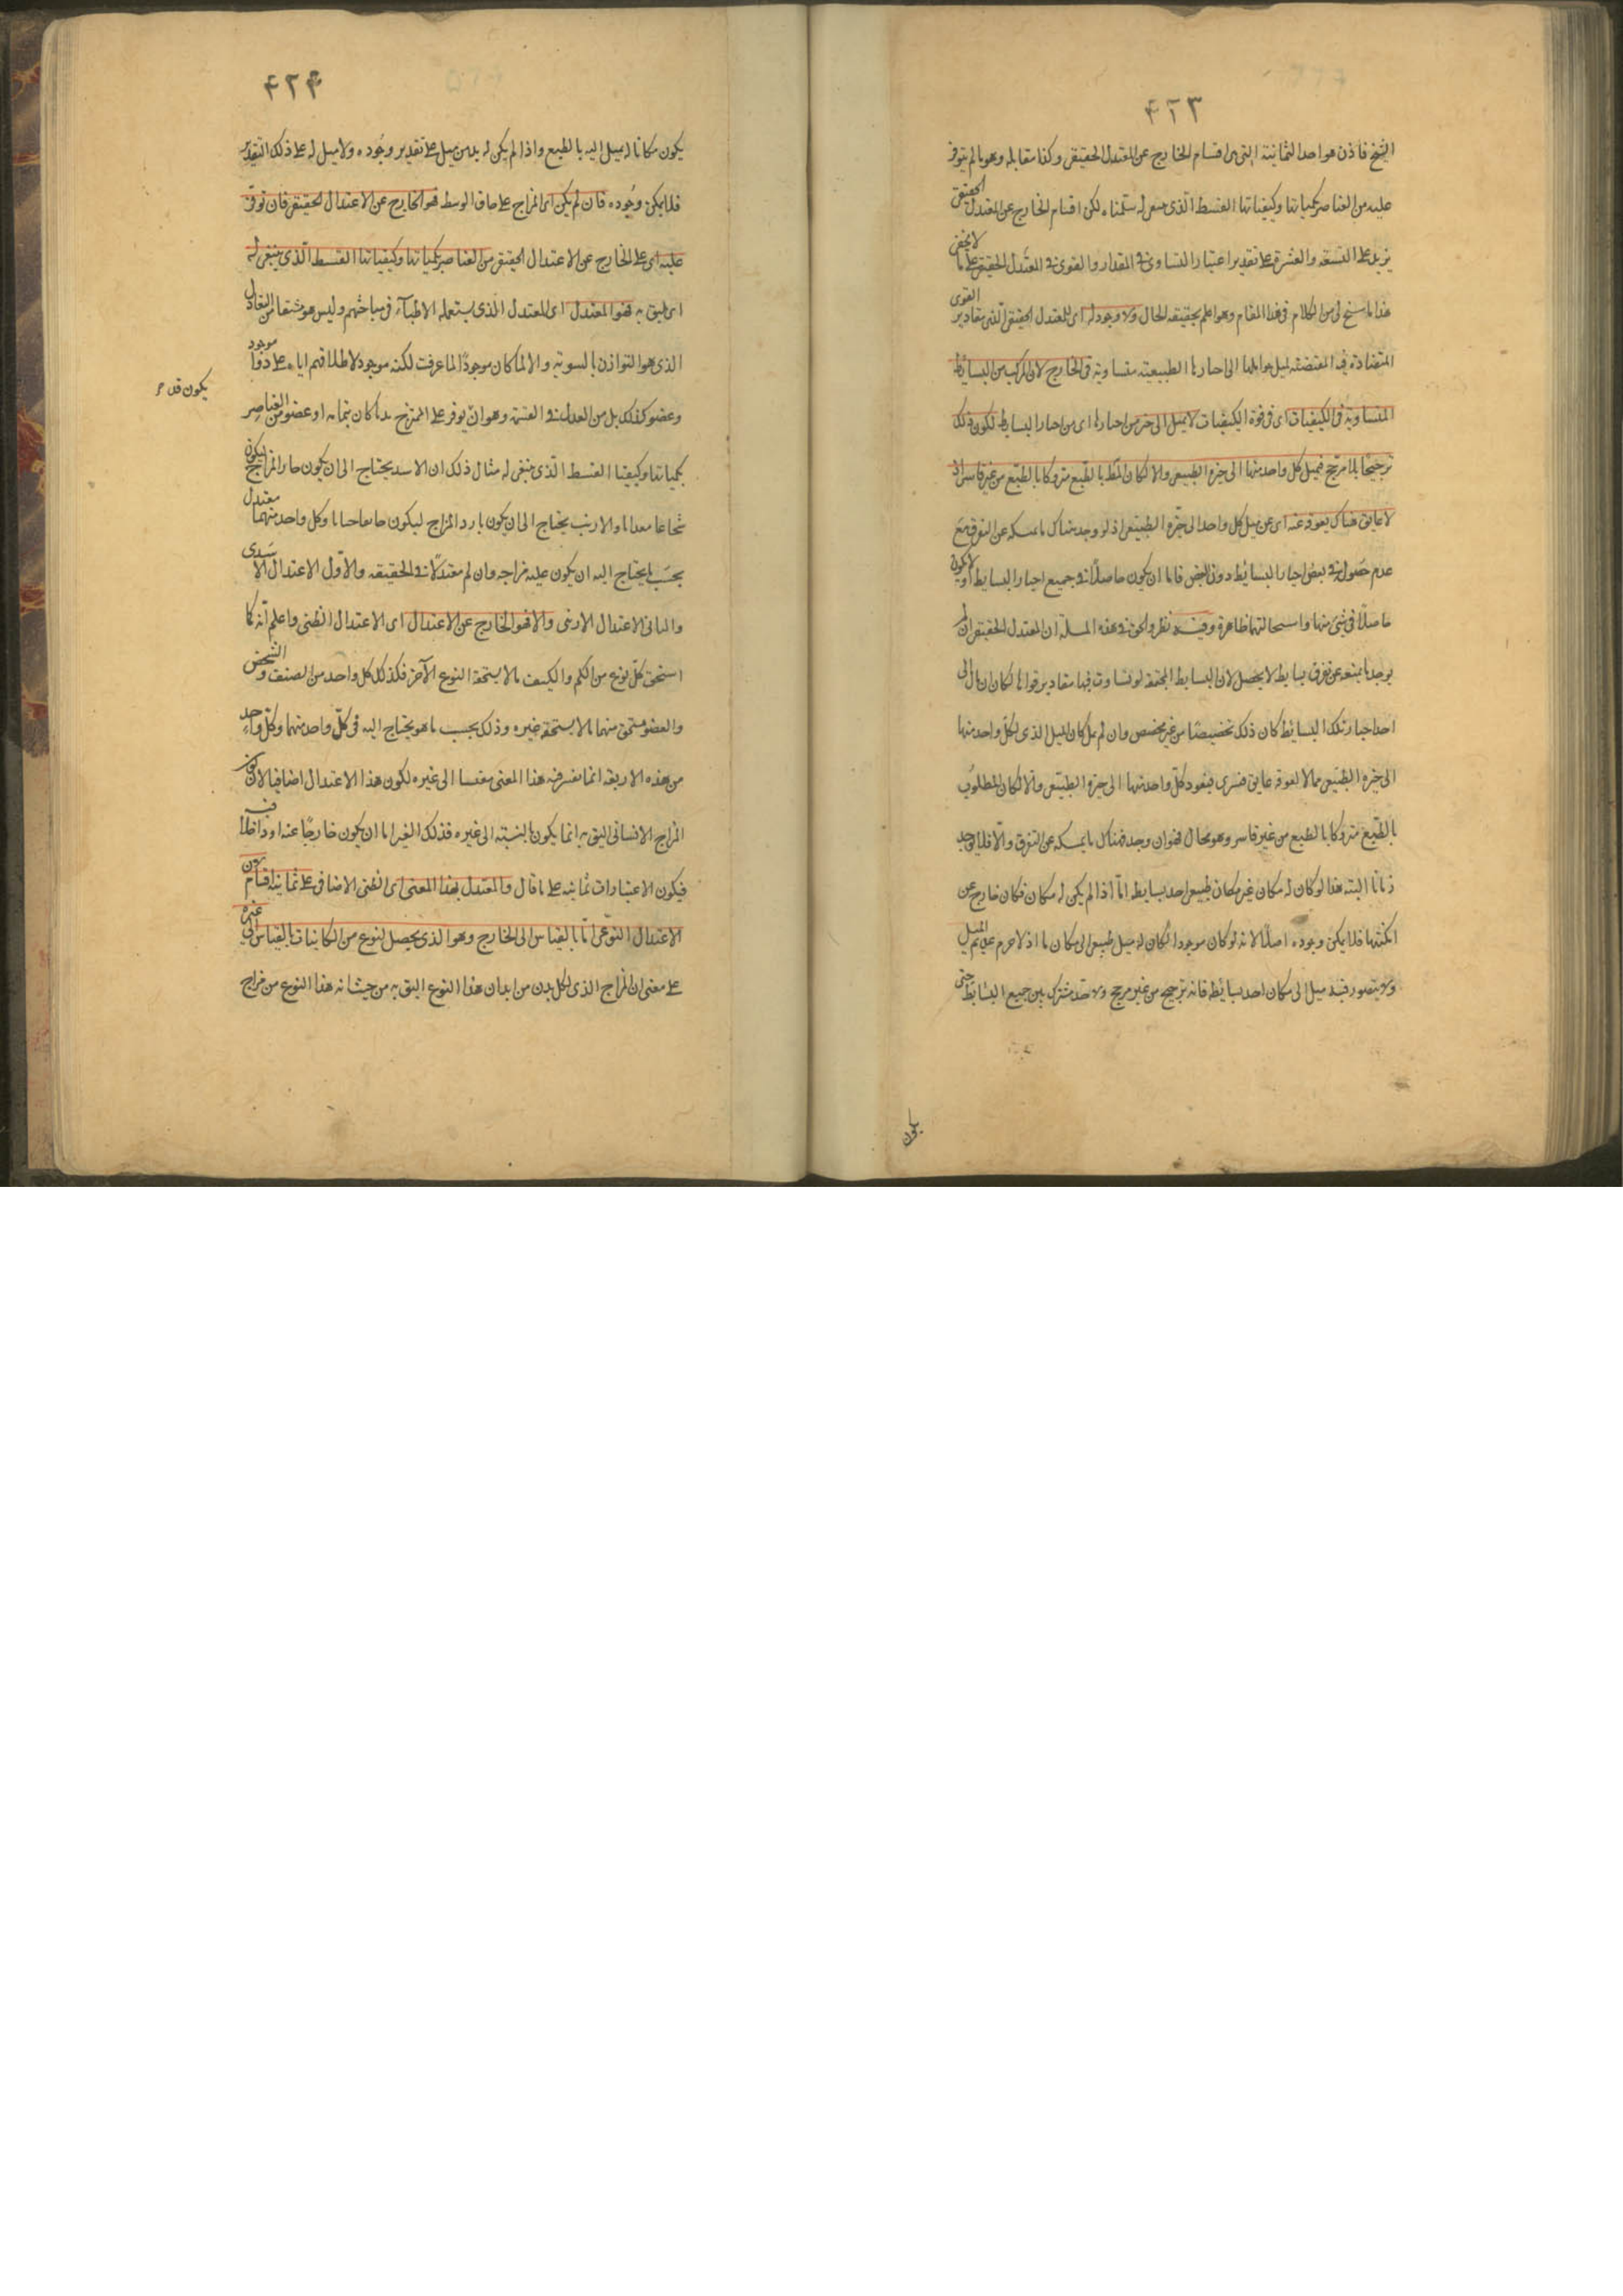 ۴۲۳
الشيخ فاذن هو احد الثمانية التى هى اقسام الخارج عن المعتدل الحقيقى وكذا مقابله وهو ما لم يتوفر
عليه من العناصر بكمياتها وكيفياتها القسط الذى ينبغى له سلمناه لكن اقسام الخارج عن المعتدل الحقيقى
يزيد على التسعة والعشرة على تقدير اعتبار التساوى فى المقدار والقوى فى المعتدل الحقيقى على ما لا يخفى
هذا ما سنح لى من الكلام فى هذا المقام وهو اعلم بحقيقة الحال ولا وجود له اى للمعتدل الحقيقى الذى مقادير القوى
المتضادة فيه المقتضية لميل الى احيازها الطبيعية متساوية فى الخارج لان المركب من البسائط
المتساوية فى الكيفيات اى فى قوة الكيفيات لا يميل الى حيز من احيازها اى من احياز البسايط لكون ذلك
ترجيحا بلا مرجح فيميل كل واحد منها الى حيزه الطبيعى والا لكان بالطبع متروكا بالطبع من غير قاسر اذ
لا عايق هناك يعوقه عنه اى عن ميل كل واحد الى حيزه الطبيعى اذ لو وجد هناك ما يمسكه عن التفرق مع
عدم حصوله فى بعض احياز البسائط دون البعض فاما ان يكون حاصلا فى جميع احياز البسايط او لا يكون
حاصلا فى شئ منها واستحالتهما ظاهرة وفيه نظر والحق فى هذه المسئلة ان المعتدل الحقيقى ان لم
يوجد ما يمنعه عن تفرق بسايطه لا يحصل لان البسايط المجتمعة لو تساوت فيها مقادير قواها لكان ان مال الى
احد احياز تلك البسائط كان ذلك تخصيصا من غير مخصص وان لم يمل كان الميل الذى لكل واحد منها
الى حيزه الطبيعى مما لا يعوقه عايق قسرى فيعود كل واحد منها الى حيزه الطبيعى والا لكان المطلوب
بالطبع متروكا بالطبع من غير قاسر وهو محال فهو ان وجد فهناك ما يمسكه عن التفرق والا فلا يوجد
زمانا البتة هذا لو كان له مكان غير مكان طبيعى احد بسايطه اما اذا لم يكن له مكان فكان خارج عن
امكنتها فلا يمكن وجوده اصلا لانه لو كان موجودا لكان له ميل طبيعى الى مكان ما اذ لا جرم عديم الميل
ولا يتصور فيه ميل الى مكان احد بسائطه فانه ترجيح من غير مرجح ولا حد مشترك بين جميع البسائط حتى
يكون
۴۲۴
يكون مكانا له يميل اليه بالطبع واذا لم يكن له بد من ميل على تقدير وجوده ولا ميل له على ذلك التقدير
فلا يمكن وجوده فان لم يكن اى المزاج على حاق الوسط فهو الخارج عن الاعتدال الحقيقى فان توفر
عليه اى على الخارج عن الاعتدال الحقيقى من العناصر بكمياتها وكيفياتها القسط الذى ينبغى له
اى يليق به فهو المعتدل اى المعتدل الذى يستعمله الاطباء فى مباحثهم وليس هو مشتقا من التعادل
الذى هو التوازن بالسوية والا لما كان موجودا لما عرفت لكنه موجود لاطلاقهم اياه على موجود
وعضو كذلك بل من العدل فى القسمة وهو ان يوفر على الممتزج بدنا كان بتمامه او عضو من العناصر
يكون قد م
بكمياتها وكيفيتها القسط الذى ينبغى له مثال ذلك ان الاسد يحتاج الى ان يكون حار المزاج ليكون
شجاعا مقداما والارنب يحتاج الى ان يكون بارد المزاج ليكون خائفا جبانا وكل واحد منهما معتدل
بحسب ما يحتاج اليه ان يكون عليه مزاجه وان لم معتدلا فى الحقيقة والاول الاعتدال الاسدى
والثانى الاعتدال الارنبى والا فهو الخارج عن الاعتدال اى الاعتدال الطبى واعلم انه كما
استحق كل نوع من الكم والكيف ما لا يستحقه النوع الآخر فكذلك كل واحد من الصنف والشخص
والعضو يستحق منهما ما لا يستحقه غيره وذلك بحسب ما هو يحتاج اليه فى كل واحد منهما وكل واحد
من هذه الاربعة انما يعرف فيه هذا المعنى مقيسا الى غيره لكون هذا الاعتدال اضافيا لان كون
المزاج الانسانى اليق به انما يكون بالنسبة الى غيره فذلك الغير اما ان يكون خارجا عنه او داخلا فيه
فيكون الاعتبارات ثمانية على ما قال والمعتدل بهذا المعنى اى الطبى الاضافى على ثمانية اقسام
الاعتدال النوعى اما بالقياس الى الخارج وهو الذى يحصل لنوع من الكاينات بالقياس الى غيره
على معنى ان المزاج الذى لكل بدن من ابدان هذا النوع اليق به من حيث انه هذا النوع من مزاج